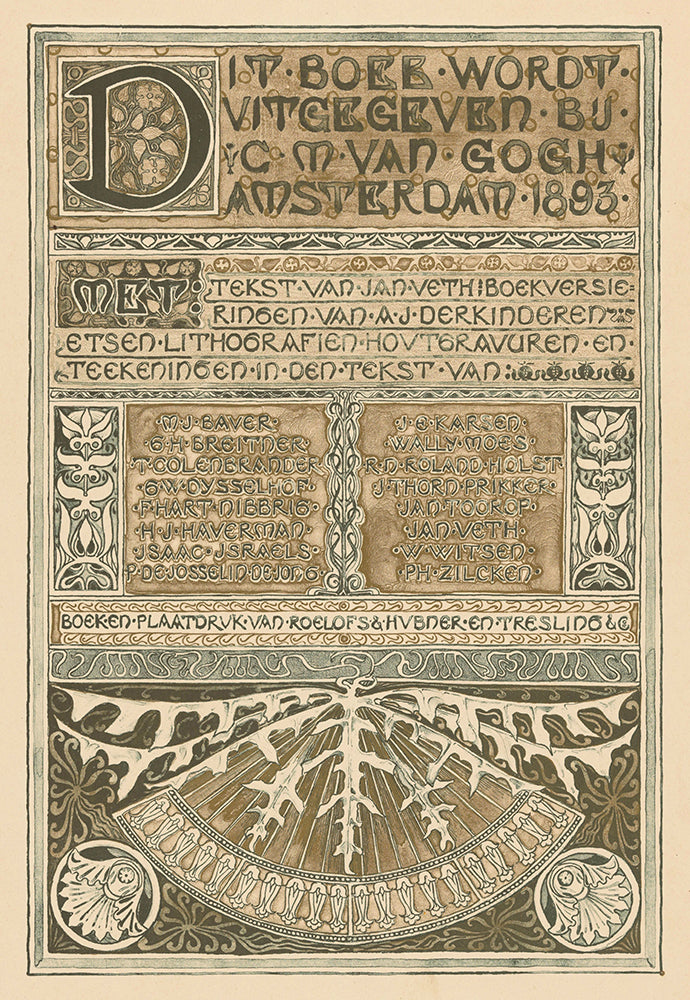 DIT · BOEK · WORDT ·
VITGEGEVEN · BIJ ·
· C · M · VAN · GOGH ·
AMSTERDAM · 1893 ·
MET :
TEKST · VAN · JAN · VETH : BOEKVERSIE=
RINGEN · VAN · A · J · DERKINDEREN
ETSEN · LITHOGRAFIEN · HOVTGRAVUREN · EN ·
TEEKENINGEN · IN · DEN · TEKST · VAN :
· M · J · BAVER ·
· G · H · BREITNER ·
· T · COLENBRANDER
· G · W · DYSSELHOF ·
· F · HART · NIBBRIG ·
H · J · HAVERMAN ·
· JSAAC · JSRAELS ·
P · DE · JOSSELIN · DE · JONG
· J · E · KARSEN ·
WALLY · MOES ·
R · N · ROLAND · HOLST
J · THORN · PRIKKER ·
JAN · TOOROP ·
JAN · VETH ·
· W · WITSEN ·
· PH · ZILCKEN ·
BOEK · EN · PLAATDRVK · VAN · ROELOFS & HVBNER · EN · TRESLING & Cº